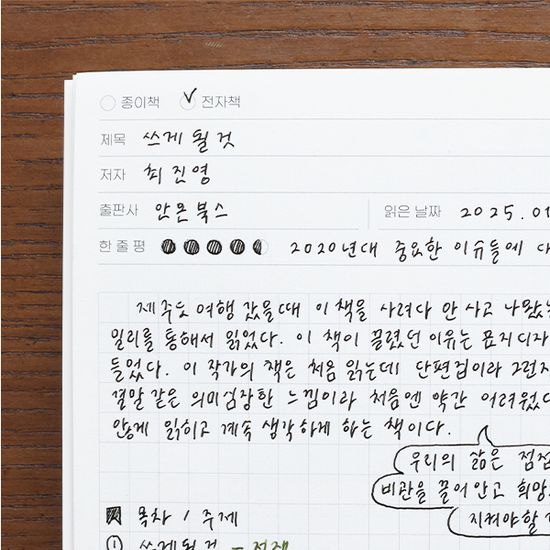 종이책 전자책
제목 쓰게 될 것
저자 최진영
출판사 안온북스 읽은 날짜 2025.01
한 줄 평 2020년대 중요한 이슈들에 대
제주도 여행 갔을 때 이 책을 사려다 안 사고 나왔는
밀리를 통해서 읽었다. 이 책이 끌렸던 이유는 표지디자
들었다. 이 작가의 책은 처음 읽는데 단편집이라 그런지
결말 같은 의미심장한 느낌이라 처음엔 약간 어려웠다
않게 읽히고 계속 생각하게 하는 책이다.
우리의 삶은 점점
비관을 끌어안고 희망
지켜야할
목차 / 주제
① 쓰게 될 것 - 전쟁